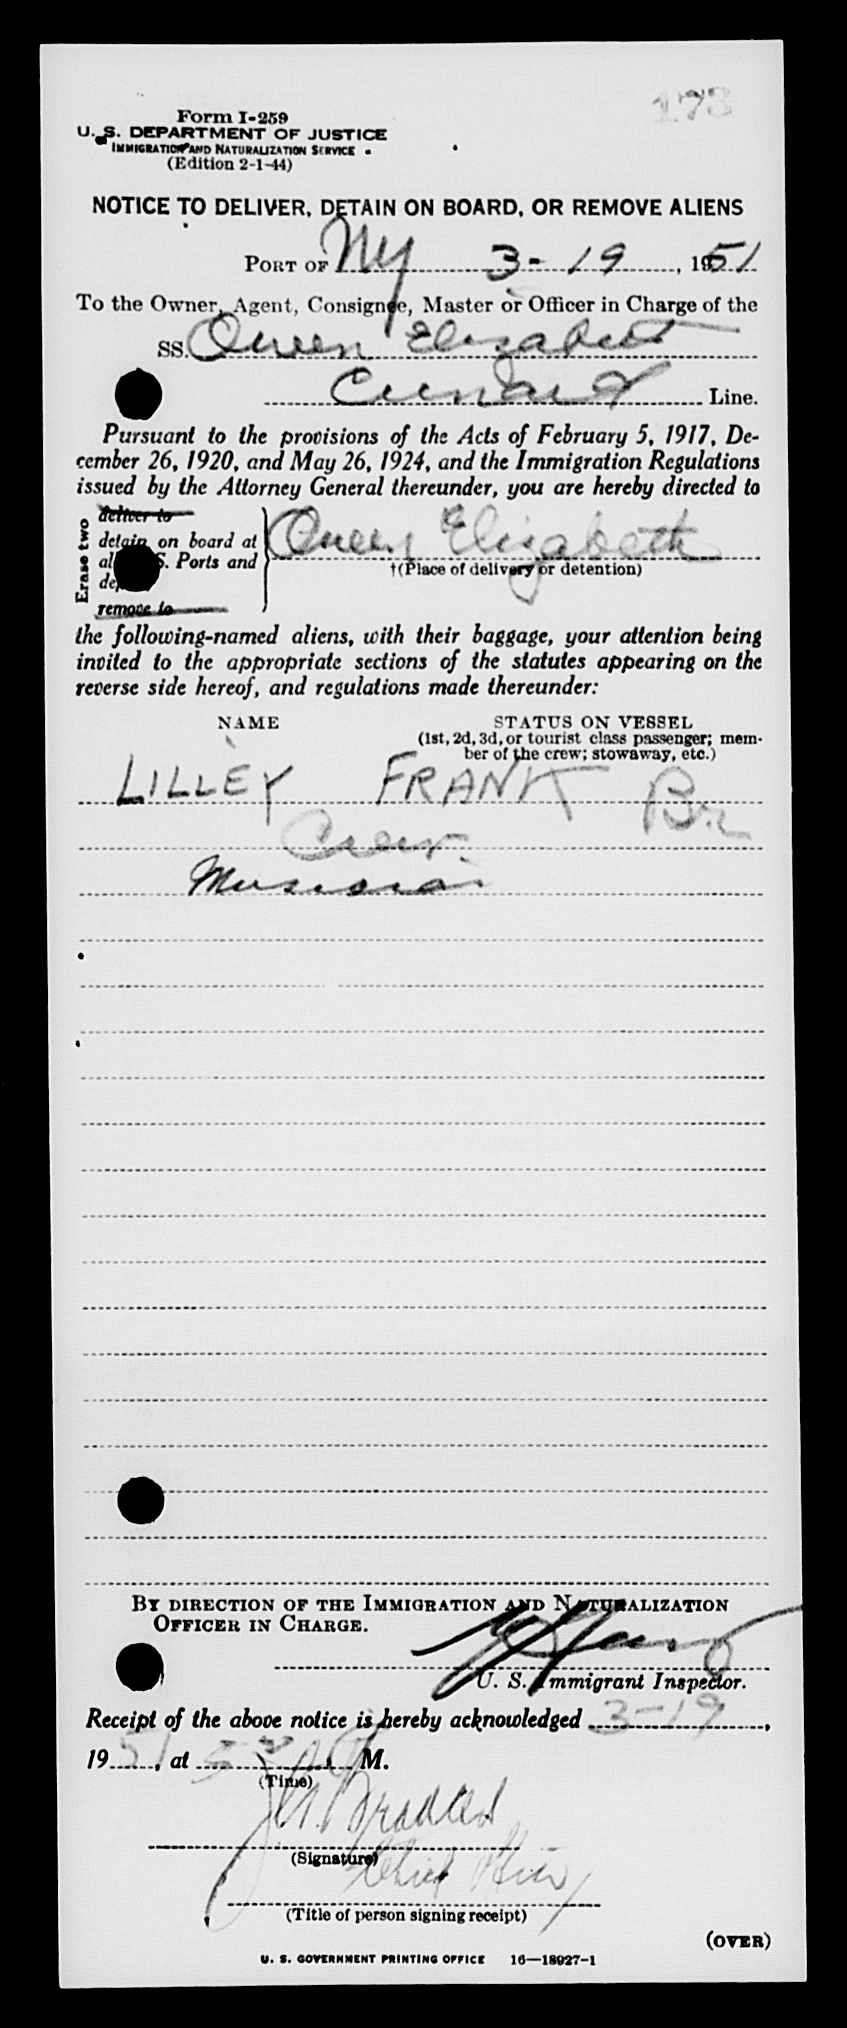 173
Form I-259
U. S. DEPARTMENT OF JUSTICE
IMMIGRATION AND NATURALIZATION SERVICE
(Edition 2-1-44)
NOTICE TO DELIVER, DETAIN ON BOARD, OR REMOVE ALIENS
PORT OF NY 3-19, 1951
To the Owner, Agent, Consignee, Master or Officer in Charge of the
SS. Queen Elizabeth
Cunard Line.
Pursuant to the provisions of the Acts of February 5, 1917, De-
cember 26, 1920, and May 26, 1924, and the Immigration Regulations
issued by the Attorney General thereunder, you are hereby directed to
Erase two
deliver to
detain on board at
all S. Ports and
remove to
Queen Elizabeth
†(Place of delivery or detention)
the following-named aliens, with their baggage, your attention being
invited to the appropriate sections of the statutes appearing on the
reverse side hereof, and regulations made thereunder:
NAME STATUS ON VESSEL
(1st, 2d, 3d, or tourist class passenger; mem-
ber of the crew; stowaway, etc.)
LILLEY FRANK Br
Crew.
Musician
BY DIRECTION OF THE IMMIGRATION AND NATURALIZATION
OFFICER IN CHARGE.
U. S. Immigrant Inspector.
Receipt of the above notice is hereby acknowledged 3-19,
1951, at M.
(Time)
(Signature)
Chief
(Title of person signing receipt)
(OVER)
U. S. GOVERNMENT PRINTING OFFICE 16—18927-1